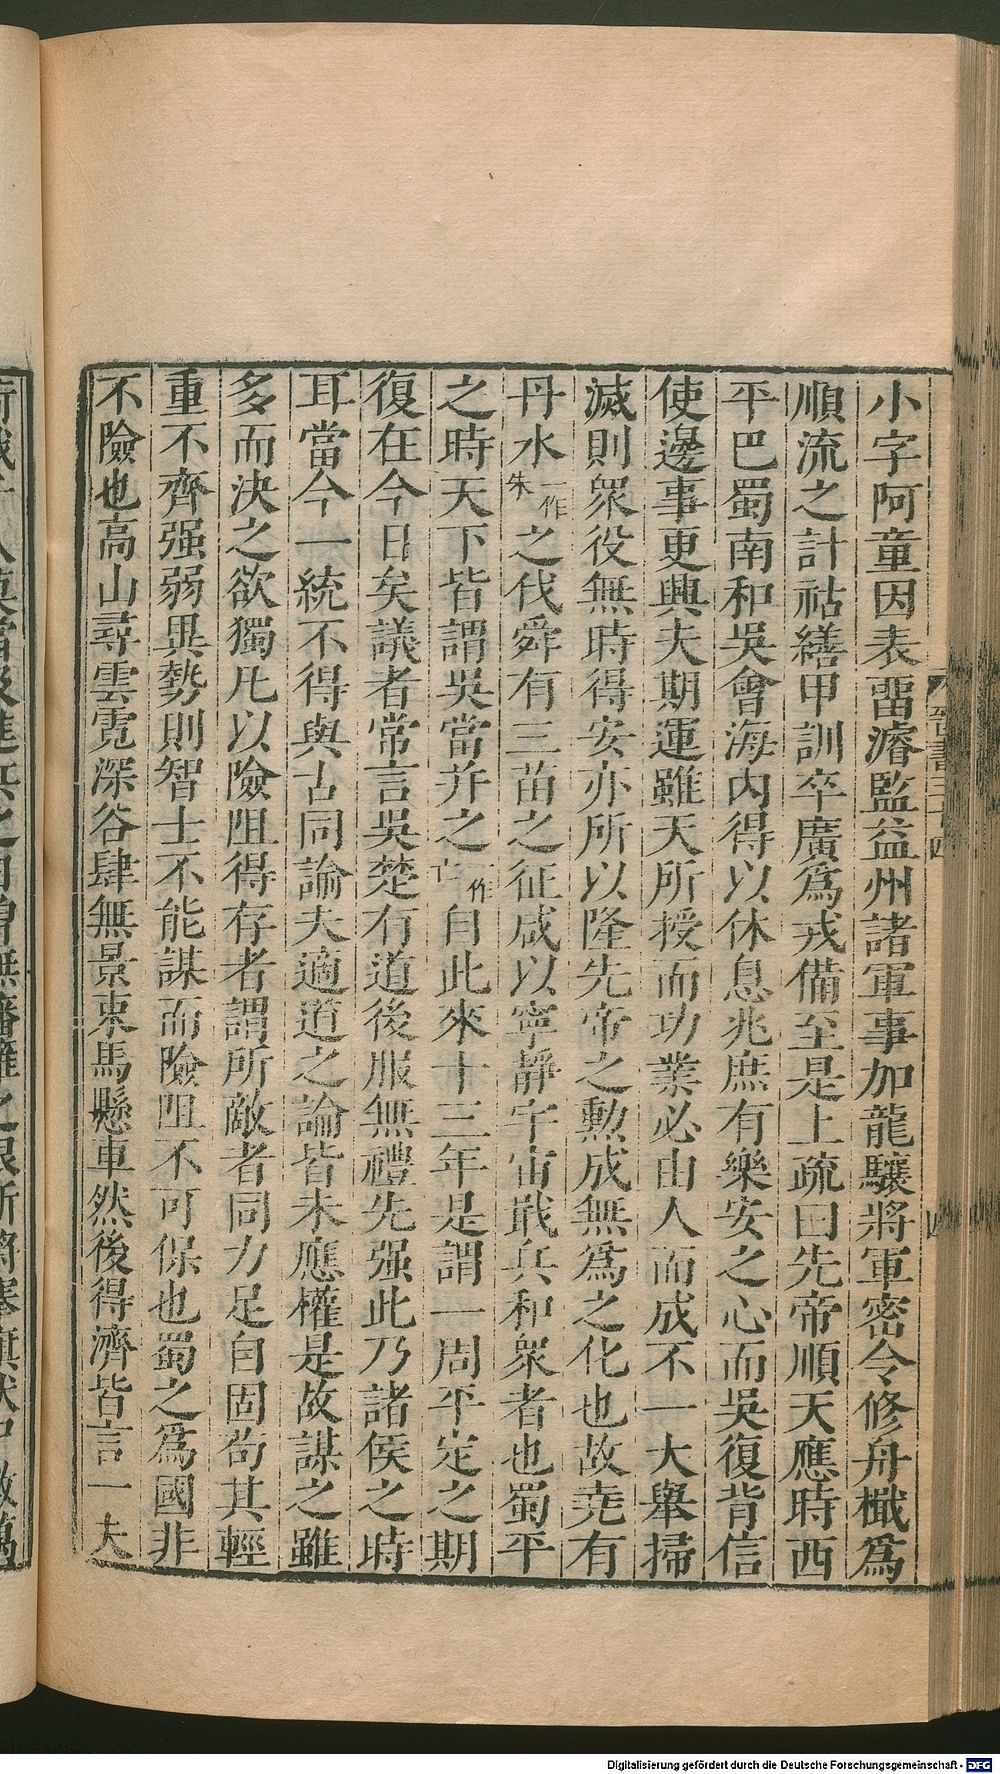 小字阿童因表畱濬監益州諸軍事加龍驤將軍密令修舟檝爲
順流之計祜繕甲訓卒廣爲戎備至是上疏曰先帝順天應時西
平巴蜀南和吳會海內得以休息兆庶有樂安之心而吳復背信
使邊事更興夫期運雖天所授而功業必由人而成不一大舉掃
滅則衆役無時得安亦所以隆先帝之勲成無爲之化也故堯有
丹水一作朱之伐舜有三苗之征咸以寧靜宇宙戢兵和衆者也蜀平
之時天下皆謂吳當并之一作亡自此來十三年是謂一周平定之期
復在今日矣議者常言吳楚有道後服無禮先强此乃諸侯之時
耳當今一統不得與古同論夫適道之論皆未應權是故謀之雖
多而決之欲獨凡以險阻得存者謂所敵者同力足自固茍其輕
重不齊强弱異勢則智士不能謀而險阻不可保也蜀之爲國非
不險也高山尋雲霓深谷肆無景束馬懸車然後得濟皆言一夫
晉書三十四
四
Digitalisierung gefördert durch die Deutsche Forschungsgemeinschaft - DFG